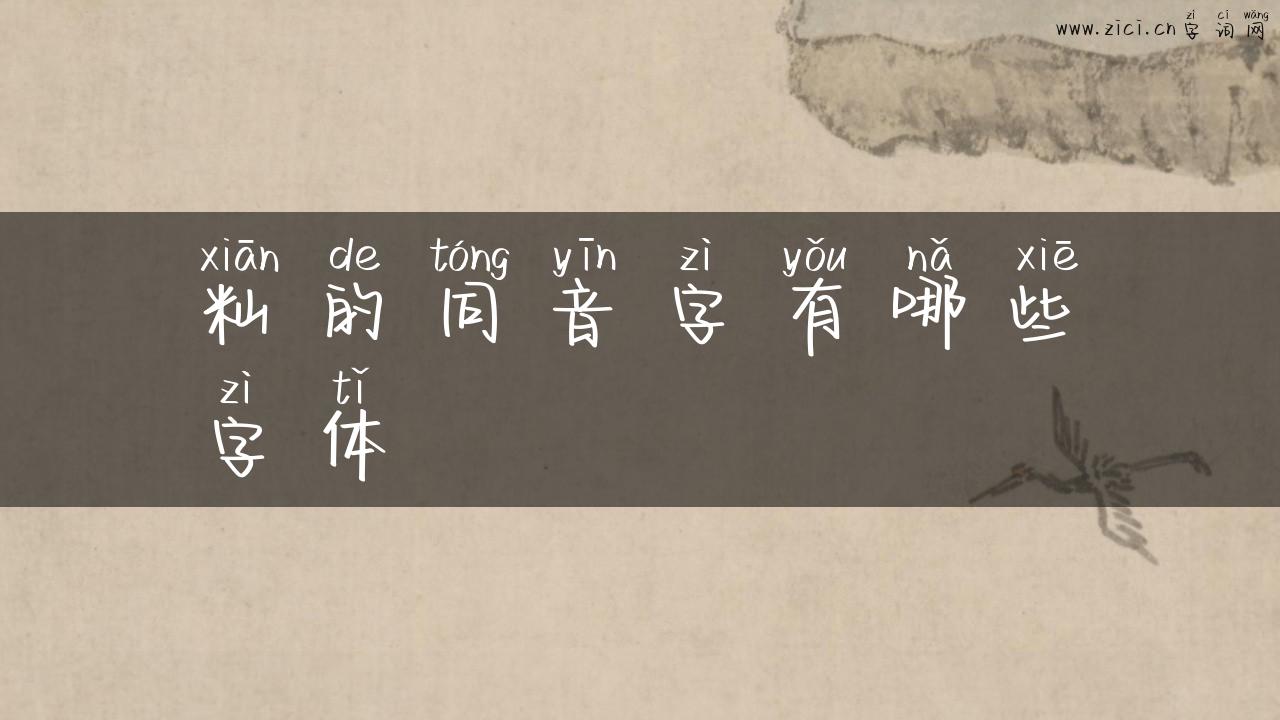 www.zici.cn zì cí wǎng 字词网
xiān de tóng yīn zì yǒu nǎ xiē
籼的同音字有哪些
zì tǐ
字体